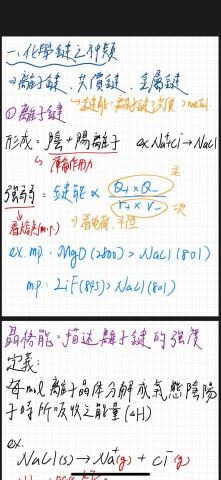 一、化學鍵之種類
⇒離子鍵、共價鍵、金屬鍵
①離子鍵
形成：陰＋陽離子 ex Na⁺Cl⁻→NaCl
庫侖作用力
主
強弱：鍵能 ∝ Q₊×Q₋ / r₊×r₋ 次
看熔點(m.p.) ⇒看電荷、半徑
ex. mp: MgO(2800) > NaCl(801)
mp: LiF(845) > NaCl(801)
晶格能：描述離子鍵的強度
定義：
每mol離子晶体分解成氣態陰陽
子時所吸收之能量(ΔH)
ex.
NaCl(s)→Na⁺(g)+Cl⁻(g)